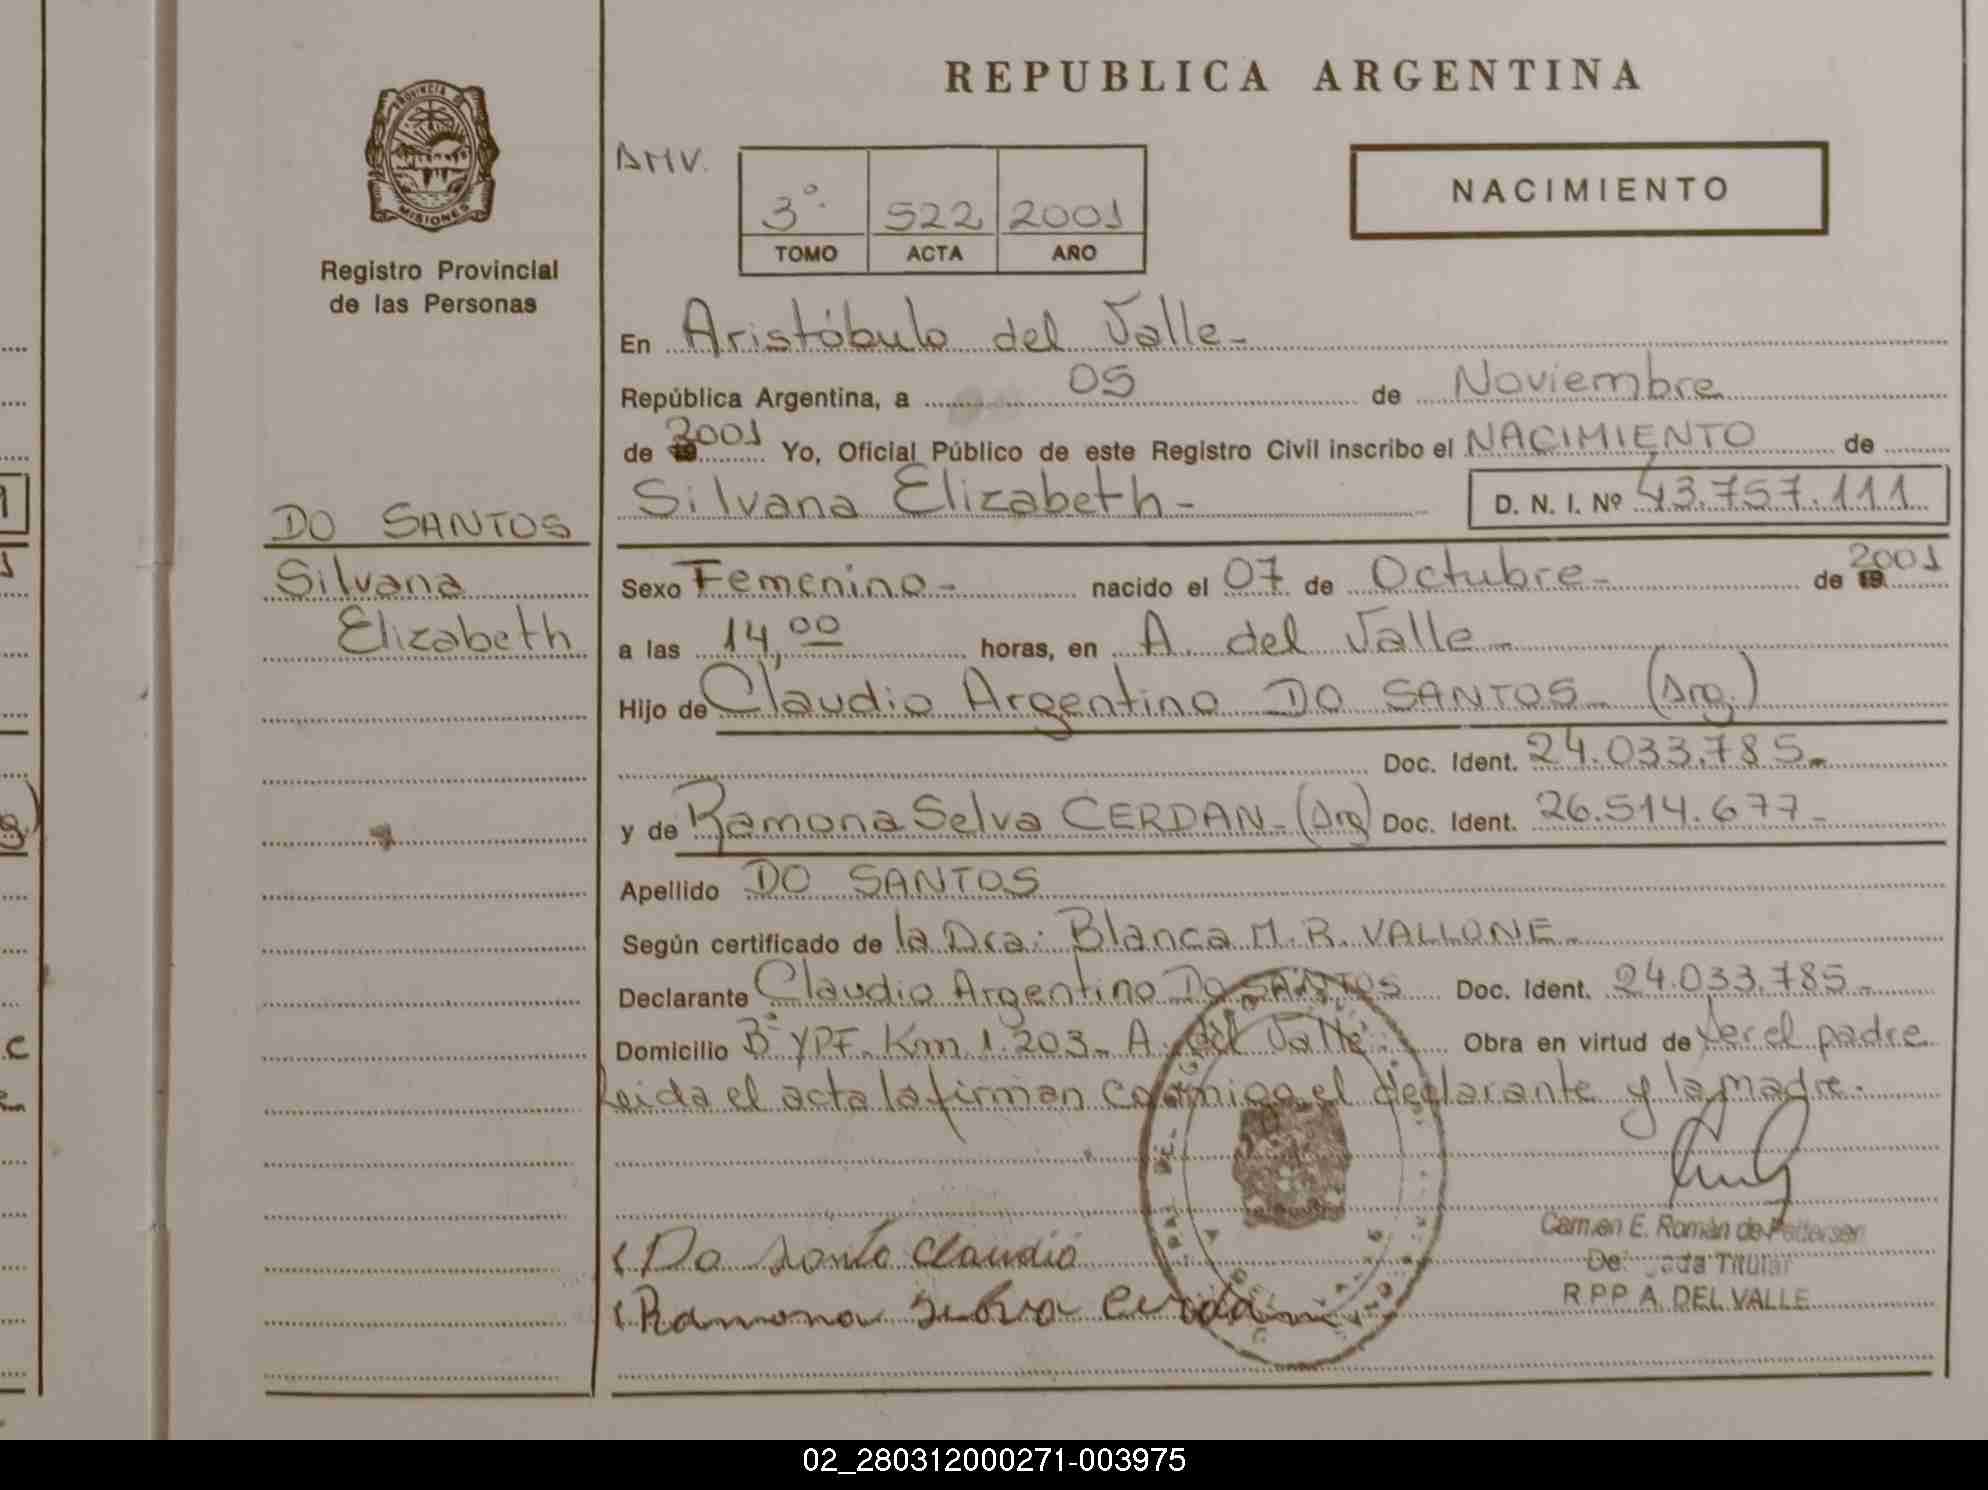 REPUBLICA ARGENTINA
PROVINCIA DE
MISIONES
Registro Provincial
de las Personas
AMV.
3º. 522 2001
TOMO ACTA AÑO
NACIMIENTO
En Aristóbulo del Valle-
República Argentina, a 05 de Noviembre
de 2001 Yo, Oficial Público de este Registro Civil inscribo el NACIMIENTO de
Silvana Elizabeth- D. N. I. Nº 43.757.111
DO SANTOS
Silvana
Elizabeth
Sexo Femenino- nacido el 07 de Octubre- de 2001
a las 14,00 horas, en A. del Valle-
Hijo de Claudio Argentino DO SANTOS- (Arg.)
Doc. Ident. 24.033.785-
y de Ramona Selva CERDAN- (Arg) Doc. Ident. 26.514.677-
Apellido DO SANTOS
Según certificado de la Dra. Blanca M. R. VALLONE-
Declarante Claudio Argentino DO SANTOS Doc. Ident. 24.033.785-
Domicilio Bº YPF- Km 1.203- A. del Valle- Obra en virtud de ser el padre
Leida el acta la firman conmigo el declarante y la madre.
Do Santo Claudio
Ramona Selva Cerdan
Carmen E. Román de Pettersen
Titular
R.P.P. A. DEL VALLE
02_280312000271-003975